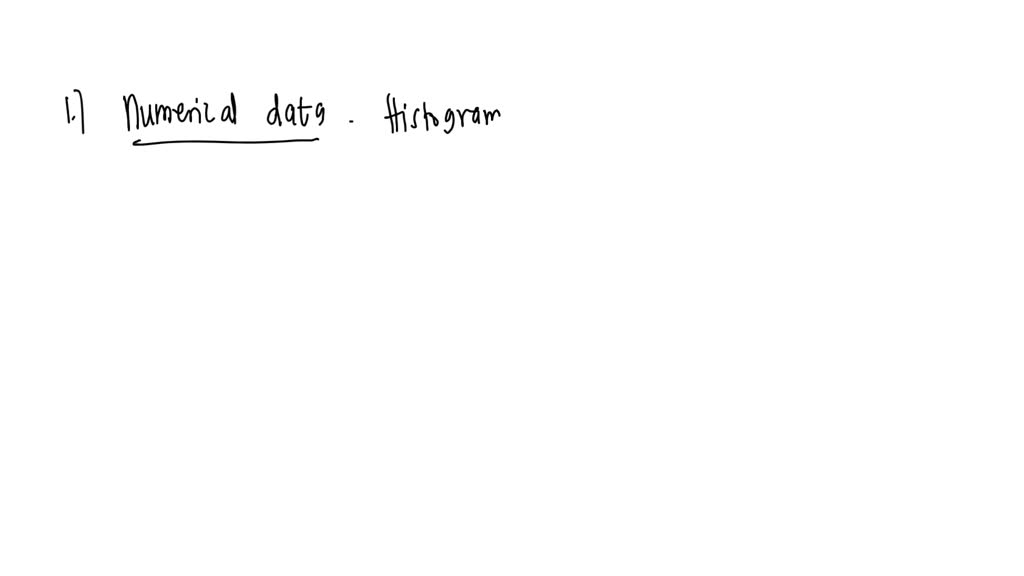 1.) Numerical data . Histogram